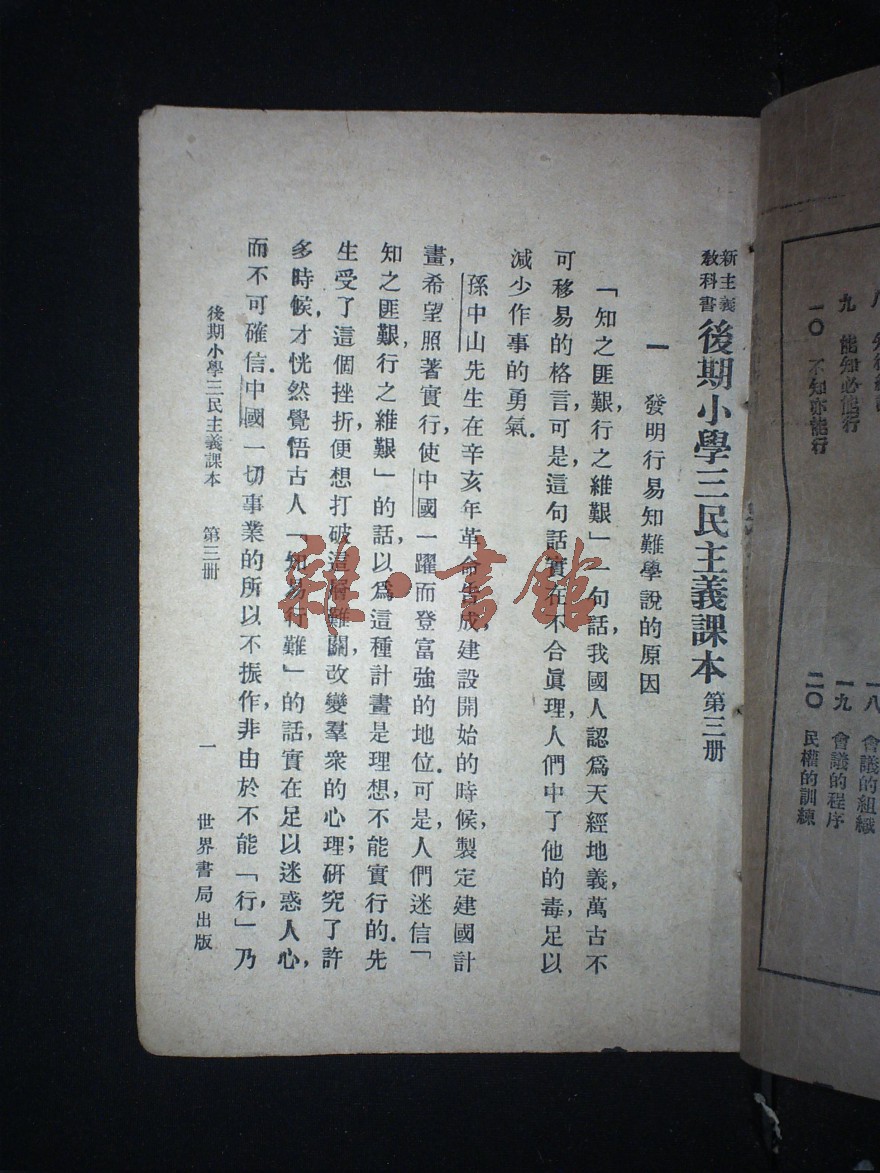 八
九 能知必能行
一〇 不知亦能行
一八 會議的組織
一九 會議的程序
二〇 民權的訓練
新主義教科書 後期小學三民主義課本 第三册
一 發明行易知難學說的原因
「知之匪艱,行之維艱」一句話,我國人認爲天經地義,萬古不
可移易的格言,可是這句話實在不合眞理,人們中了他的毒,足以
減少作事的勇氣.
孫中山先生在辛亥年革命告成,建設開始的時候,製定建國計
畫,希望照著實行,使中國一躍而登富強的地位.可是人們迷信「
知之匪艱,行之維艱」的話,以爲這種計畫是理想,不能實行的.先
生受了這個挫折,便想打破這層難關,改變羣衆的心理;研究了許
多時候,才恍然覺悟古人「知易行難」的話,實在足以迷惑人心,
而不可確信.中國一切事業的所以不振作,非由於不能「行,」乃
後期小學三民主義課本 第三册 一 世界書局出版
雜·書館